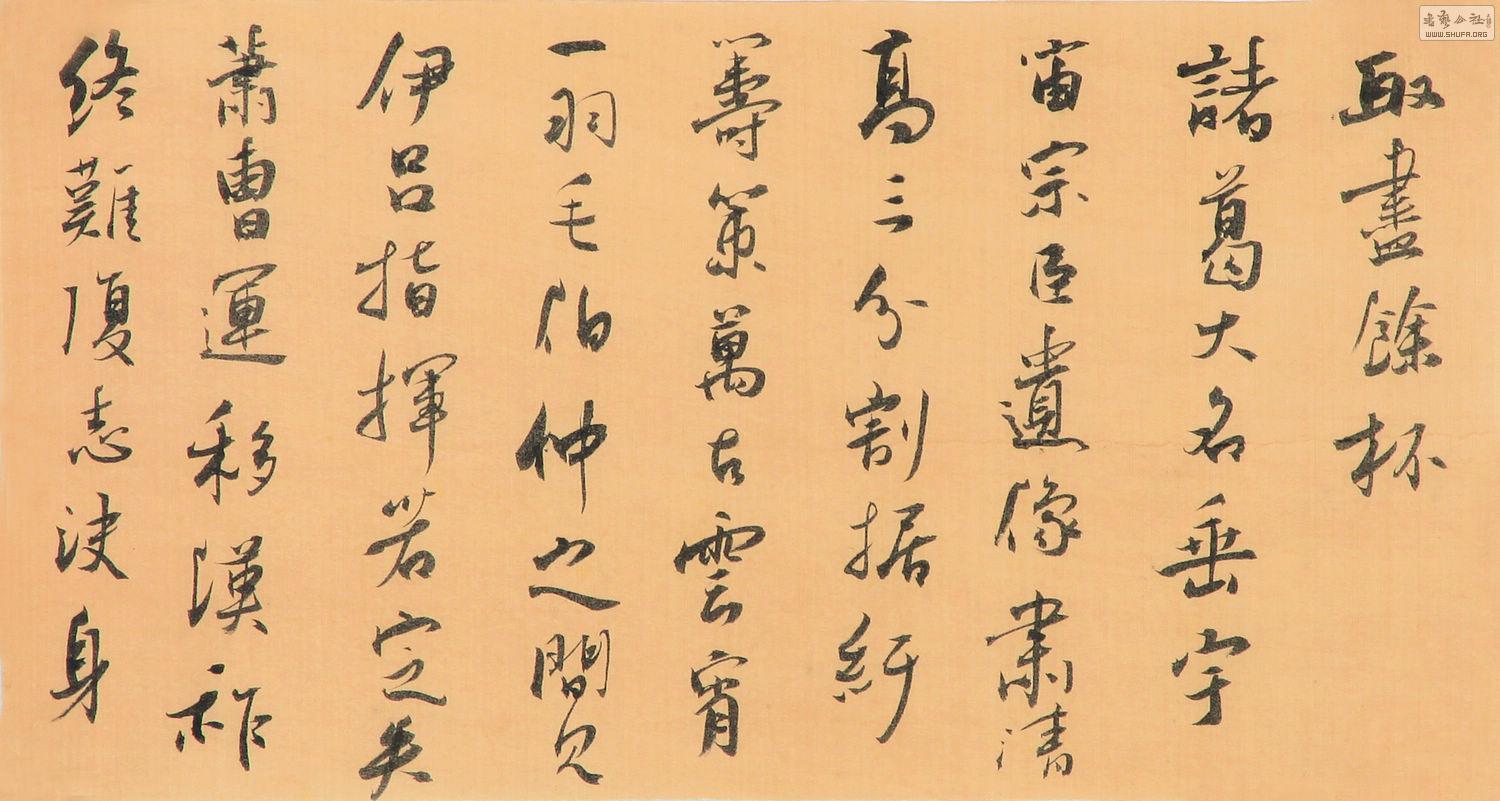 取盡餘杯
諸葛大名垂宇
宙宗臣遺像肅清
高三分割据紆
籌策萬古雲霄
一羽毛伯仲之間見
伊吕指揮若定失
蕭曹運移漢祚
終難復志決身
書藝公社
WWW.SHUFA.ORG